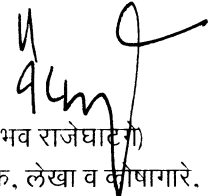 भव राजेघाटगे)
क, लेखा व कोषागारे.